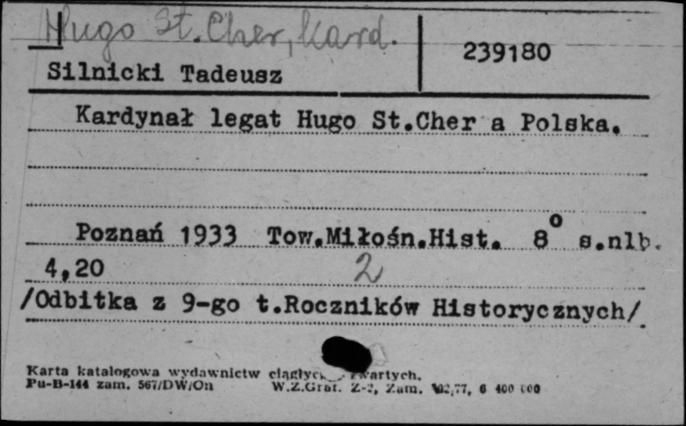 Hugo St. Cher, Kard.
239180
Silnicki Tadeusz
Kardynał legat Hugo St.Cher a Polska.
Poznań 1933 Tow.Miłośn.Hist. 8° s.nlb.
4,20 2
/Odbitka z 9-go t.Roczników Historycznych/
Karta katalogowa wydawnictw
Pu-B-144 zam. 567/DW/On W.Z.Graf. Z-2, Zam. 77, 6 400 000